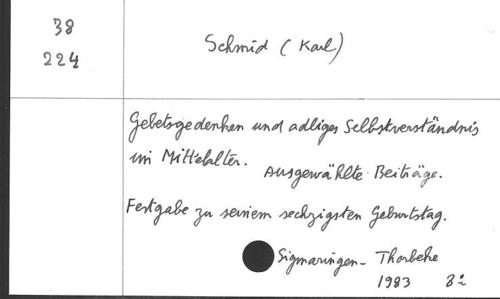 38
224
Schmid (Karl)
Gebetsgedenken und adliges Selbstverständnis
im Mittelalter. Ausgewählte Beiträge.
Festgabe zu seinem sechzigsten Geburtstag.
Sigmaringen - Thorbeke
1983 8°